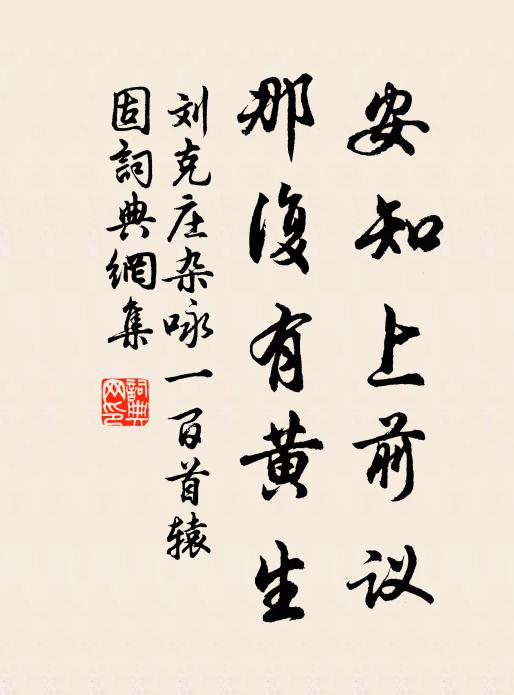 安知上前议
那復有黄生
刘克庄杂咏一百首辕
固詞典網集
詞典
网印